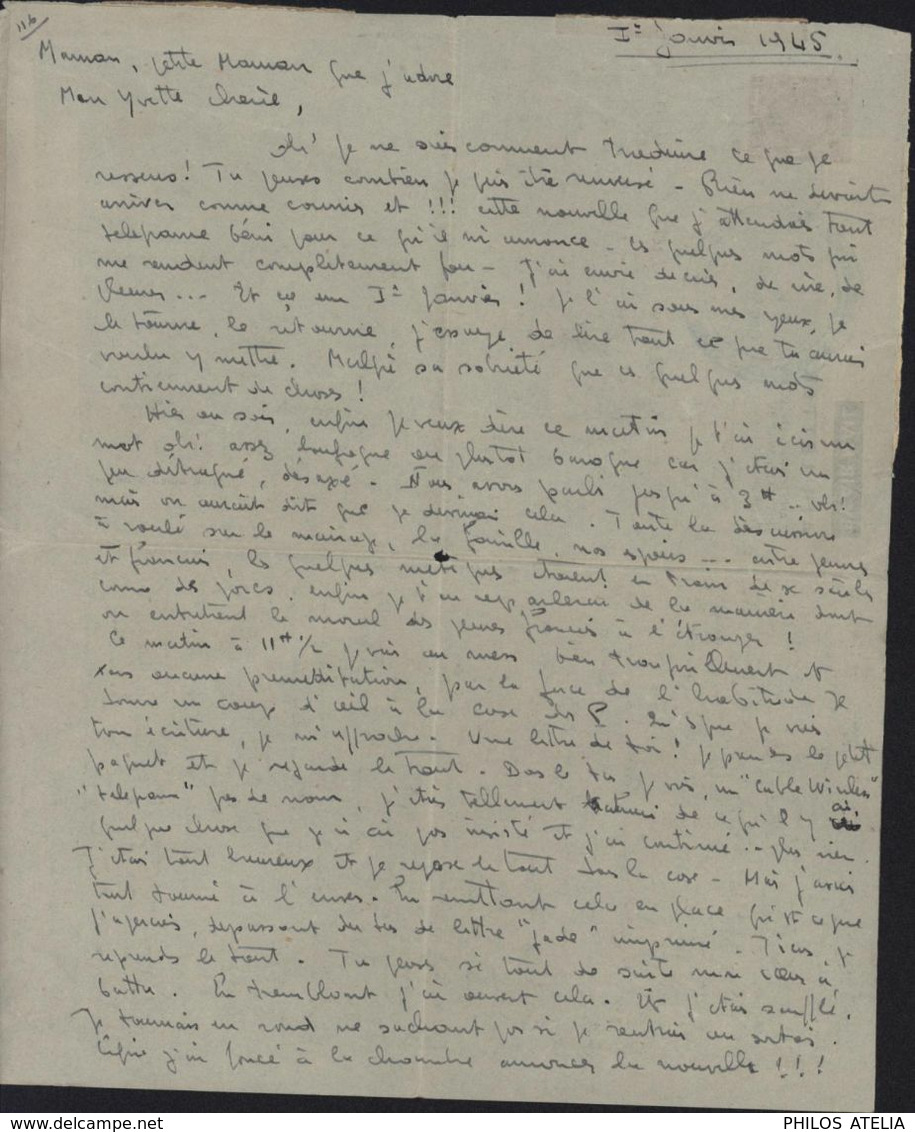 116
Ier Janvier 1945.
Maman, petite Maman que j'adore
Mon Yvette Cherie,
Oh! je ne sais comment traduire ce que je
ressens! Tu penses combien je puis être renversé - Rien ne devait
arriver comme courrier et !!! cette nouvelle que j'attendais tant
béni pour ce qu'il m'annonce - ces quelques mots qui
me rendent complètement fou - J'ai envie de crier, de rire, de
pleurer... Et ce un Ier Janvier! Je l'ai sous mes yeux, je
le tourne, le retourne, j'essaye de lire tout ce que tu aurais
voulu y mettre. Malgré sa sobriété que ces quelques mots
contiennent de choses!
Hier au soir, enfin je veux dire ce matin je t'ai écris un
mot oh! assez loufoque ou plutot baroque car j'étais un
peu détraqué, désaxé - Nous avons parlé jusqu'à 3H -- oh!
mais on aurait dit que je devinais cela. Toute la discussion
a roulé sur le mariage, la famille, nos espoirs --- entre jeunes
et français, les quelques étaient en train de se saouler
comme des porcs, enfin je t'en reparlerai de la manière dont
on entretient le moral des jeunes français à l'étranger!
Ce matin à 11H 1/2 je vais au mess bien tranquillement et
sans aucune préméditation, par la force de l'habitude je
donne un coup d'œil à la case des P. que je vois
ton écriture, je m'approche - Une lettre de toi! je prends le petit
paquet et je regarde le tout. Dans le tas je vois, un "Cable Wireless"
" " pas de nom, j'étais tellement de ce qu'il y ai
quelque chose que je n'ai pas insisté et j'ai continué -- plus rien.
J'étais tout heureux et je repose le tout dans la case - Mais j'avais
tout tourné à l'envers. En remettant cela en place qu'est ce que
j'aperçois, depassant du tas de lettre "Jade" imprimé. Tiens, je
reprends le tout. Tu penses si tout de suite mon cœur a
battu. En tremblant j'ai ouvert cela. Et j'étais soufflé.
Je tournais en rond ne sachant pas si je rentrais ou sortais.
Enfin j'ai foncé à la chambre annoncer la nouvelle!!!
PHILOS ATELIA